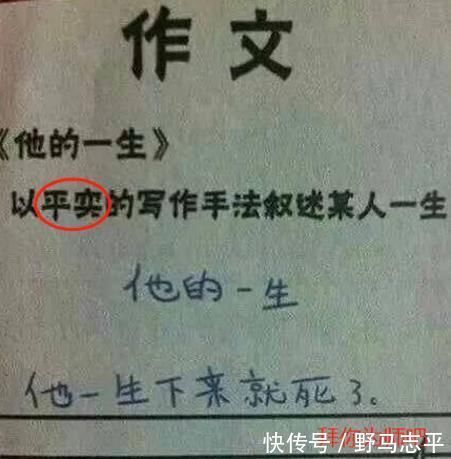 作文
《他的一生》
以平实的写作手法叙述某人一生
他的一生
他一生下来就死了。
拜你为师吧
快传号/野马志平